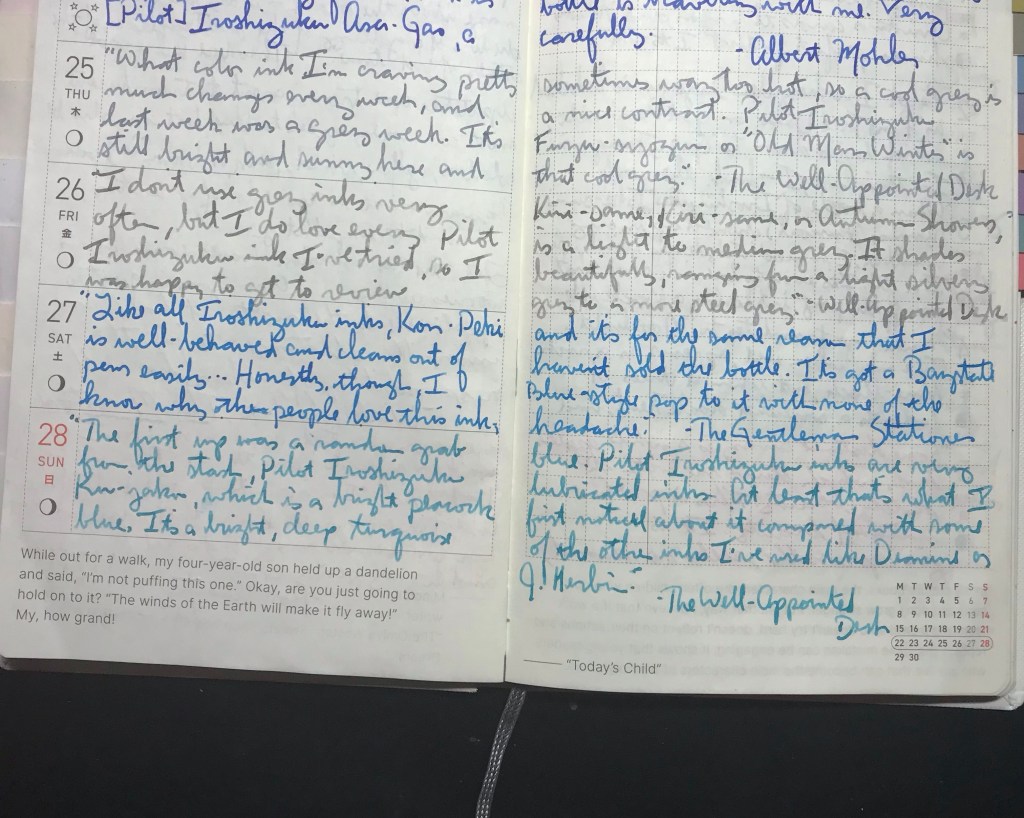 [Pilot] Iroshizuku Asa-Gao, a
25
THU
木
"What color ink I'm craving pretty
much changes every week, and
last week was a grey week. It's
still bright and sunny here and
26
FRI
金
"I don't use grey inks very
often, but I do love every Pilot
Iroshizuku ink I've tried, so I
was happy to get to review
27
SAT
土
"Like all Iroshizuku inks, Kon-Peki
is well-behaved and cleans out of
pens easily... Honestly, though, I
know why other people love this ink,
28
SUN
日
"The first up was a random grab
from the stash, Pilot Iroshizuku
Ku-jaku, which is a bright peacock
blue. It's a bright, deep turquoise
While out for a walk, my four-year-old son held up a dandelion
and said, "I'm not puffing this one." Okay, are you just going to
hold on to it? "The winds of the Earth will make it fly away!"
My, how grand!
bottle is traveling with me. Very
carefully.
- Albert Mohler
sometimes way too hot, so a cool grey is
a nice contrast. Pilot Iroshizuku
or "Old Man Winter" is
that cool grey." - The Well-Appointed Desk
Kiri-same, Kiri-same, or Autumn Shower,
is a light to medium grey. It shades
beautifully, ranging from a light silvery
grey to a more steel grey." - Well-Appointed Desk
and it's for the same reason that I
haven't sold the bottle. It's got a Baystate
Blue-style pop to it with none of the
headache." - The Gentleman Stationer
blue. Pilot Iroshizuku inks are very
lubricated inks. At least that's what I
first noticed about it compared with some
of the other inks I've used like Diamine or
J. Herbin."
- The Well-Appointed
Desk
M T W T F S S
1 2 3 4 5 6 7
8 9 10 11 12 13 14
15 16 17 18 19 20 21
22 23 24 25 26 27 28
29 30
"Today's Child"